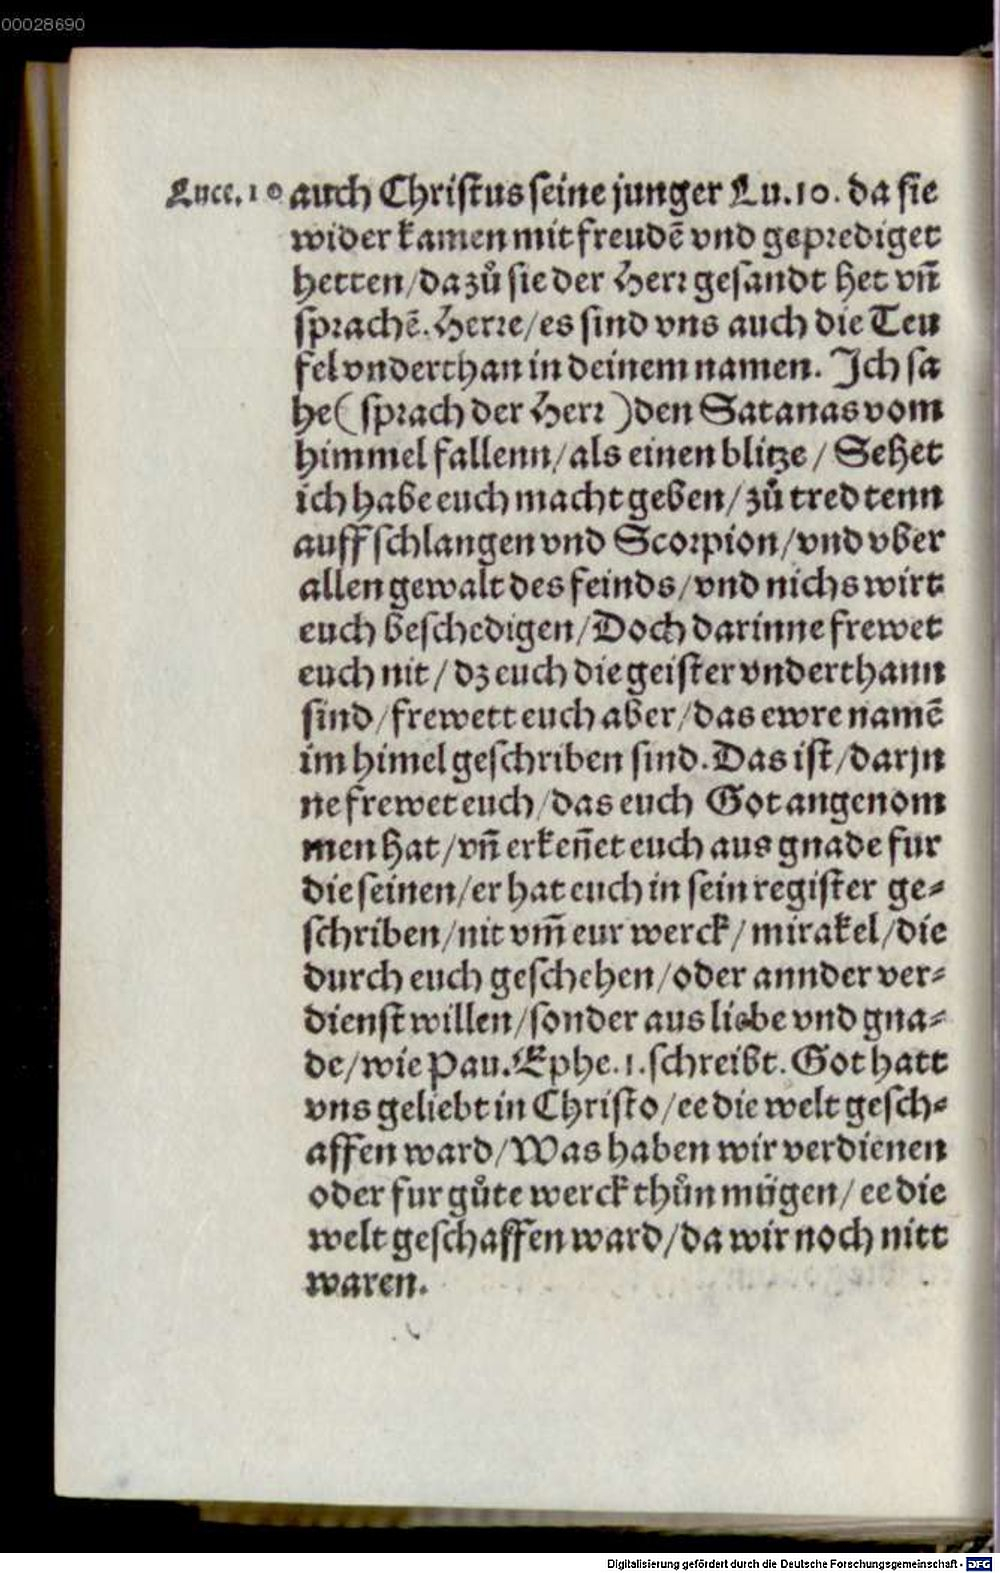 00028690
Luce. 10 auch Christus seine junger Lu. 10. da sie
wider kamen mit freudē vnd geprediget
hetten/da zů sie der Herr gesandt het vñ
sprachē. Herre/es sind vns auch die Teu
fel vnderthan in deinem namen. Ich sa
he (sprach der Herr) den Satanas vom
himmel fallenn/als einen blitze/Sehet
ich habe euch macht geben/zů tredtenn
auff schlangen vnd Scorpion/vnd vber
allen gewalt des feinds/vnd nichs wirt
euch beschedigen/Doch darinne frewet
euch nit/dz euch die geister vnderthann
sind/frewett euch aber/das ewre namē
im himel geschriben sind. Das ist/darjn
ne frewet euch/das euch Got angenom
men hat/vñ erkeñet euch aus gnade fur
die seinen/er hat euch in sein register ge-
schriben/nit vm̃ eur werck/mirakel/die
durch euch geschehen/oder annder ver-
dienst willen/sonder aus liebe vnd gna-
de/wie Pau. Ephe. 1. schreibt. Got hatt
vns geliebt in Christo/ee die welt gesch-
affen ward/Was haben wir verdienen
oder fur gůte werck thůn mügen/ee die
welt geschaffen ward/da wir noch nitt
waren.
Digitalisierung gefördert durch die Deutsche Forschungsgemeinschaft - DFG